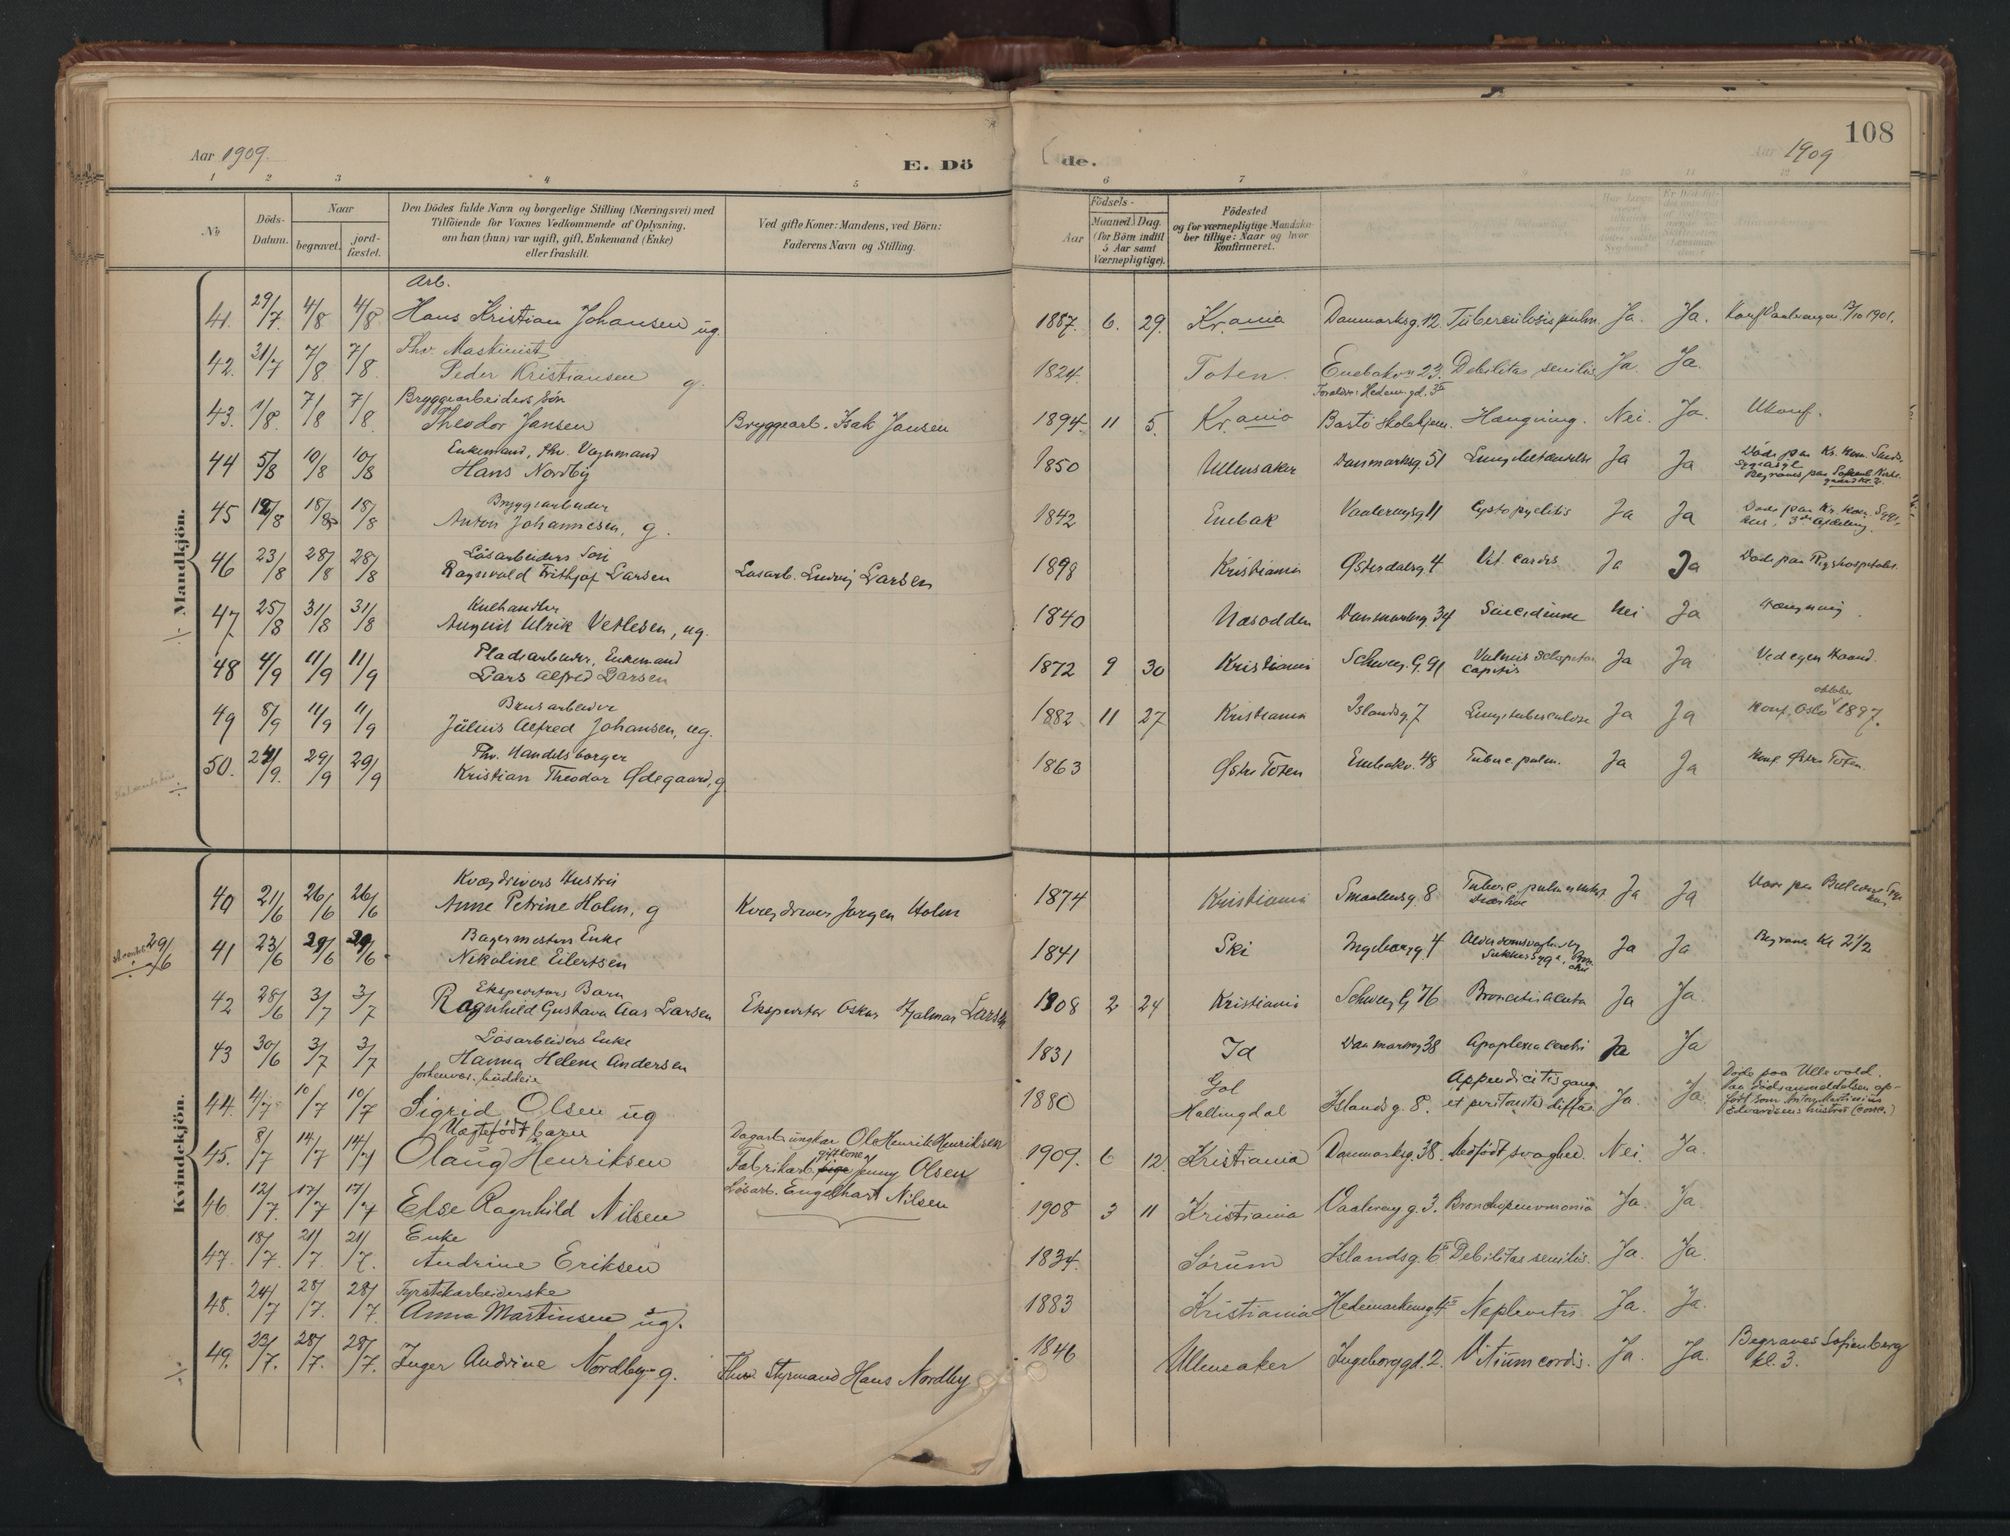 108
Aar 1909.
E. Döde.
Aar 1909
1 2 3 4 5 6 7
№
Döds-Datum.
Naar
begravet.
jord-fæstet.
Den Dödes fulde Navn og borgerlige Stilling (Næringsvei) med
Tilföiende for Voxnes Vedkommende af Oplysning,
om han (hun) var ugift, gift, Enkemand (Enke)
eller fraskilt.
Ved gifte Koner: Mandens, ved Börn:
Faderens Navn og Stilling.
Födsels-
Aar
Maaned. Dag.
(for Börn indtil
5 Aar samt
Værnepligtige).
Födested
og for værnepligtige Mandska-
ber tillige: Naar og hvor
Konfirmeret.
Mandkjön.
Arb.
41. 29/7 4/8 4/8 Hans Kristian Johansen ug. 1887. 6. 29. Kr.ania Danmarksg. 12. Tuberculosis pulm. Ja. Ja. Konf Vaalerengen /10 1901.
Fhv. Maskinist
42. 31/7 7/8 7/8 Peder Kristiansen g. 1824. Toten. Enebakv. 23. Debilitas senilis Ja. Ja.
Bryggearbeiders søn
43. 1/8 7/8 7/8 Theodor Jansen Bryggearb. Isak Jansen 1894. 11 5. Kr.ania Bastö skolehjem. Hængning. Nei. Ja. Ukonf.
Enkemand, fhv. Vognmand
44 5/8 10/8 10/8 Hans Nordby 1850 Ullensaker Danmarksg. 51 Lungebetændelse Ja Ja Döde paa Kr. Kom.
Begraves paa
Bryggearbeider
45 12/8 18/8 18/8 Anton Johannesen, g. 1842 Enebak Vaalerengsg 11 Cystopyelitis Ja Ja Döde paa Kr. Kom. Syge-
hus, 3de afdeling.
Lösarbeiders Sön
46 23/8 28/8 28/8 Ragnvald Frithjof Larsen Lösarb. Ludvig Larsen 1898 Kristiania Østerdalsg. 4 Vit. cordis Ja Ja Döde paa Rigshospitalet.
Kulhandler
47 25/8 31/8 31/8 August Ulrik Vetlesen, ug. 1840 Næsodden Danmarksg. 34 Suicidium Nei Ja Hængning.
Pladsarbeider, Enkemand
48 4/9 11/9 11/9 Lars Alfred Larsen 1872 9 30 Kristiania Schweig. G. 91 Vulnus sclopetar.
capitis Ja Ja Ved egen Haand.
Brusarbeider
49 8/9 11/9 11/9 Julius Alfred Johansen, ug. 1882 11 27 Kristiania Islandsg. 7 Lungetuberculose Ja Ja Konf. Oslo oktober 1897.
Fhv. Handelsborger
50. 24/9. 29/9 29/9 Kristian Theodor Ødegaard, g 1863 Østre Toten Enebakv. 48 Tuberc. pulm. Ja Ja Konf Østre Toten.
Kvindekjön.
Kvægdrivers Hustru
40 21/6 26/6 26/6 Anne Petrine Holm, g Kvægdriver Jørgen Holm 1874 Kristiania Smaalensg. 8 Tuberc. pulm Ja Ja Döde paa Ullevaal Syge-
hus
Bagermesters Enke
29/6
41 23/6 29/6 29/6. Nikoline Eilertsen 1841 Ski Ingeborgg 4 Alderdomssvaghed og
Sukkersyge, Ja Ja Begrav. Kl 2 1/2
Ekspeditörs Barn
42 28/6 3/7 3/7 Ragnhild Gustava Aas Larsen Ekspeditör Oskar Hjalmar Larsen 1908 2 24 Kristiania Schweig G 76 Bronchitis acuta Ja Ja.
Lösarbeiders Enke
43 30/6 3/7 3/7 Hanna Helene Andersen 1831 Id Danmarksg 38 Apoplexia cerebri Ja Ja
forhenvær. budeie
44. 4/7 10/7 10/7 Sigrid Olsen ug 1880 Gol
Hallingdal Islandsg. 8. Appendicitis gang.
et peritonitis diffusa Ja. Ja. Döde paa Ullevold.
Paa dödsanmeldelsen op-
fört som Anton Martinius
Edvardsens hustru (conc.)
Uægtefödt barn
45. 8/7 14/7 14/7 Olaug Henriksen Dagarb. ungkar Ole Henrik Henriksen
Fabrikarb. gift kone Jenny Olsen 1909. 6 12. Kristiania Danmarksg. 38. Medfödt svaghed. Nei. Ja.
46 12/7. 17/7 17/7 Else Ragnhild Nilsen Lösarb. Engelhart Nilsen 1908 3 11 Kristiania Vaalerengg. 3. Bronchopneumonia Ja. Ja.
Enke
47. 18/7 21/7. 21/7. Andrine Eriksen 1834. Sørum Islandsg. 6 II Debilitas senilis. Ja. Ja.
Fyrstikarbeiderske
48. 24/7 28/7. 28/7. Anna Martinsen ug. 1883 Kristiania Hedemarkensg. 4 II Nephritis. Ja. Ja.
49. 23/7. 28/7. 28/7. Inger Andrine Nordby g. Fhv. Styrmand Hans Nordby 1846 Ullensaker Ingeborggd. 2. Vitium cordis. Ja. Ja. Begraves Sofienberg
kl. 3.